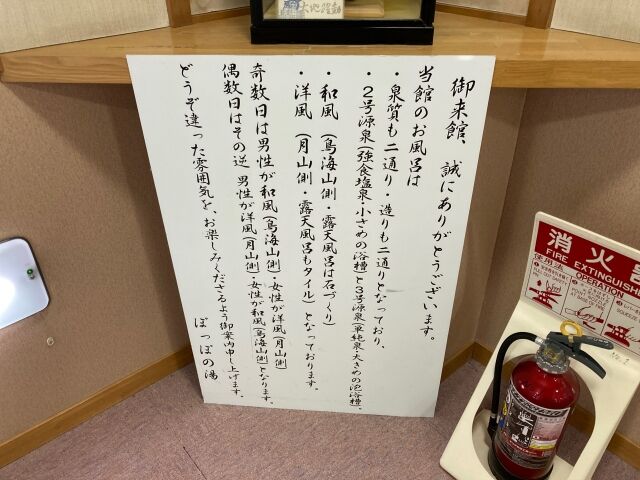 御来館、誠にありがとうございます。
当館のお風呂は
・泉質も二通り・造りも二通りとなっており、
・2号源泉(強食塩泉・小さめの浴槽)と3号源泉(単純泉・大きめの泡浴槽)、
・和風(鳥海山側・露天風呂は石づくり)
・洋風(月山側・露天風呂もタイル)となっております。
奇数日は男性が和風(鳥海山側)・女性が洋風(月山側)
偶数日はその逆男性が洋風(月山側)・女性が和風(鳥海山側)となります。
どうぞ違った雰囲気を、お楽しみくださるよう御案内申し上げます。
ぽっぽの湯
大地躍動
消火
FIRE EXTINGUISHER
使用法
OPERATION